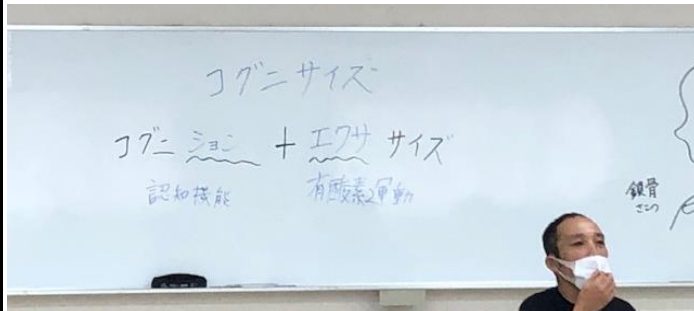 コグニサイズ
コグニション + エクササイズ
認知機能 有酸素運動
鎖骨
さこつ